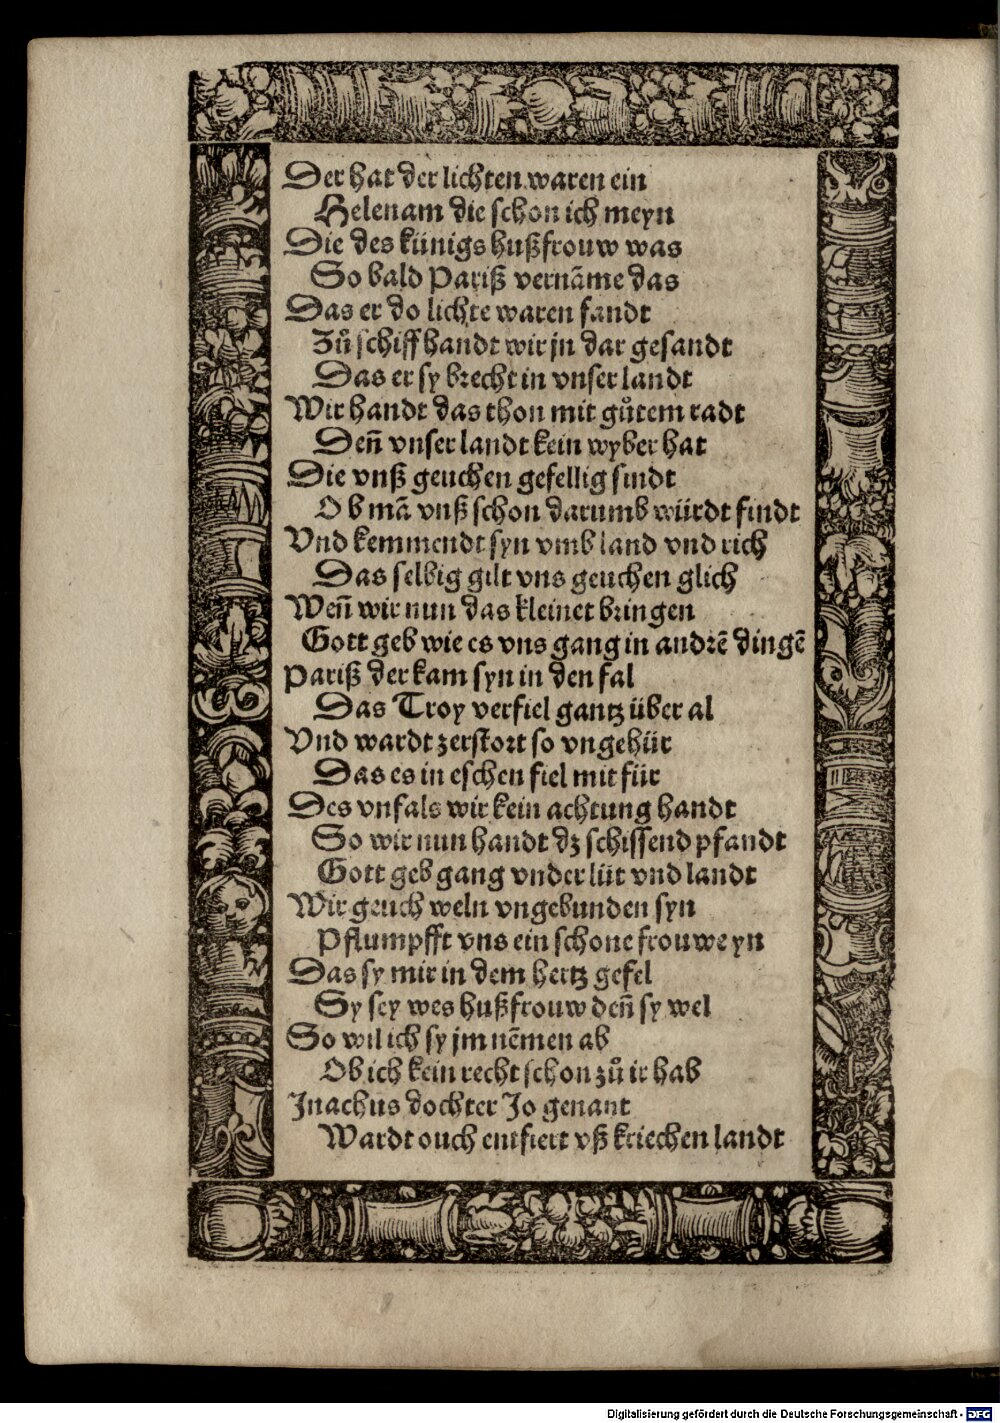 Der hat der lichten waren ein
Helenam die schon ich meyn
Die des künigs hußfrouw was
So bald Pariß vernāme das
Das er do lichte waren fandt
Zů schiff handt wir jn dar gesandt
Das er sy brecht in vnser landt
Wir handt das thon mit gůtem radt
Den̄ vnser landt kein wyber hat
Die vnß geuchen gefellig sindt
Ob mā vnß schon darumb würdt findt
Vnd kemmendt syn vmb land vnd rich
Das selbig gilt vns geuchen glich
Wen̄ wir nun das kleinet bringen
Gott geb wie es vns gang in andrē dingē
Pariß der kam syn in den fal
Das Troy verfiel gantz über al
Vnd wardt zerstort so vngehür
Das es in eschen fiel mit für
Des vnfals wir kein achtung handt
So wir nun handt dz schissend pfandt
Gott geb gang vnder lüt vnd landt
Wir geuch weln vngebunden syn
Pflumpfft vns ein schone frouwe yn
Das sy mir in dem hertz gefel
Sy sey wes hußfrouw den̄ sy wel
So wil ich sy jm nēmen ab
Ob ich kein recht schon zů ir hab
Inachus dochter Io genant
Wardt ouch entfiert vß kriechen landt
Digitalisierung gefördert durch die Deutsche Forschungsgemeinschaft - DFG